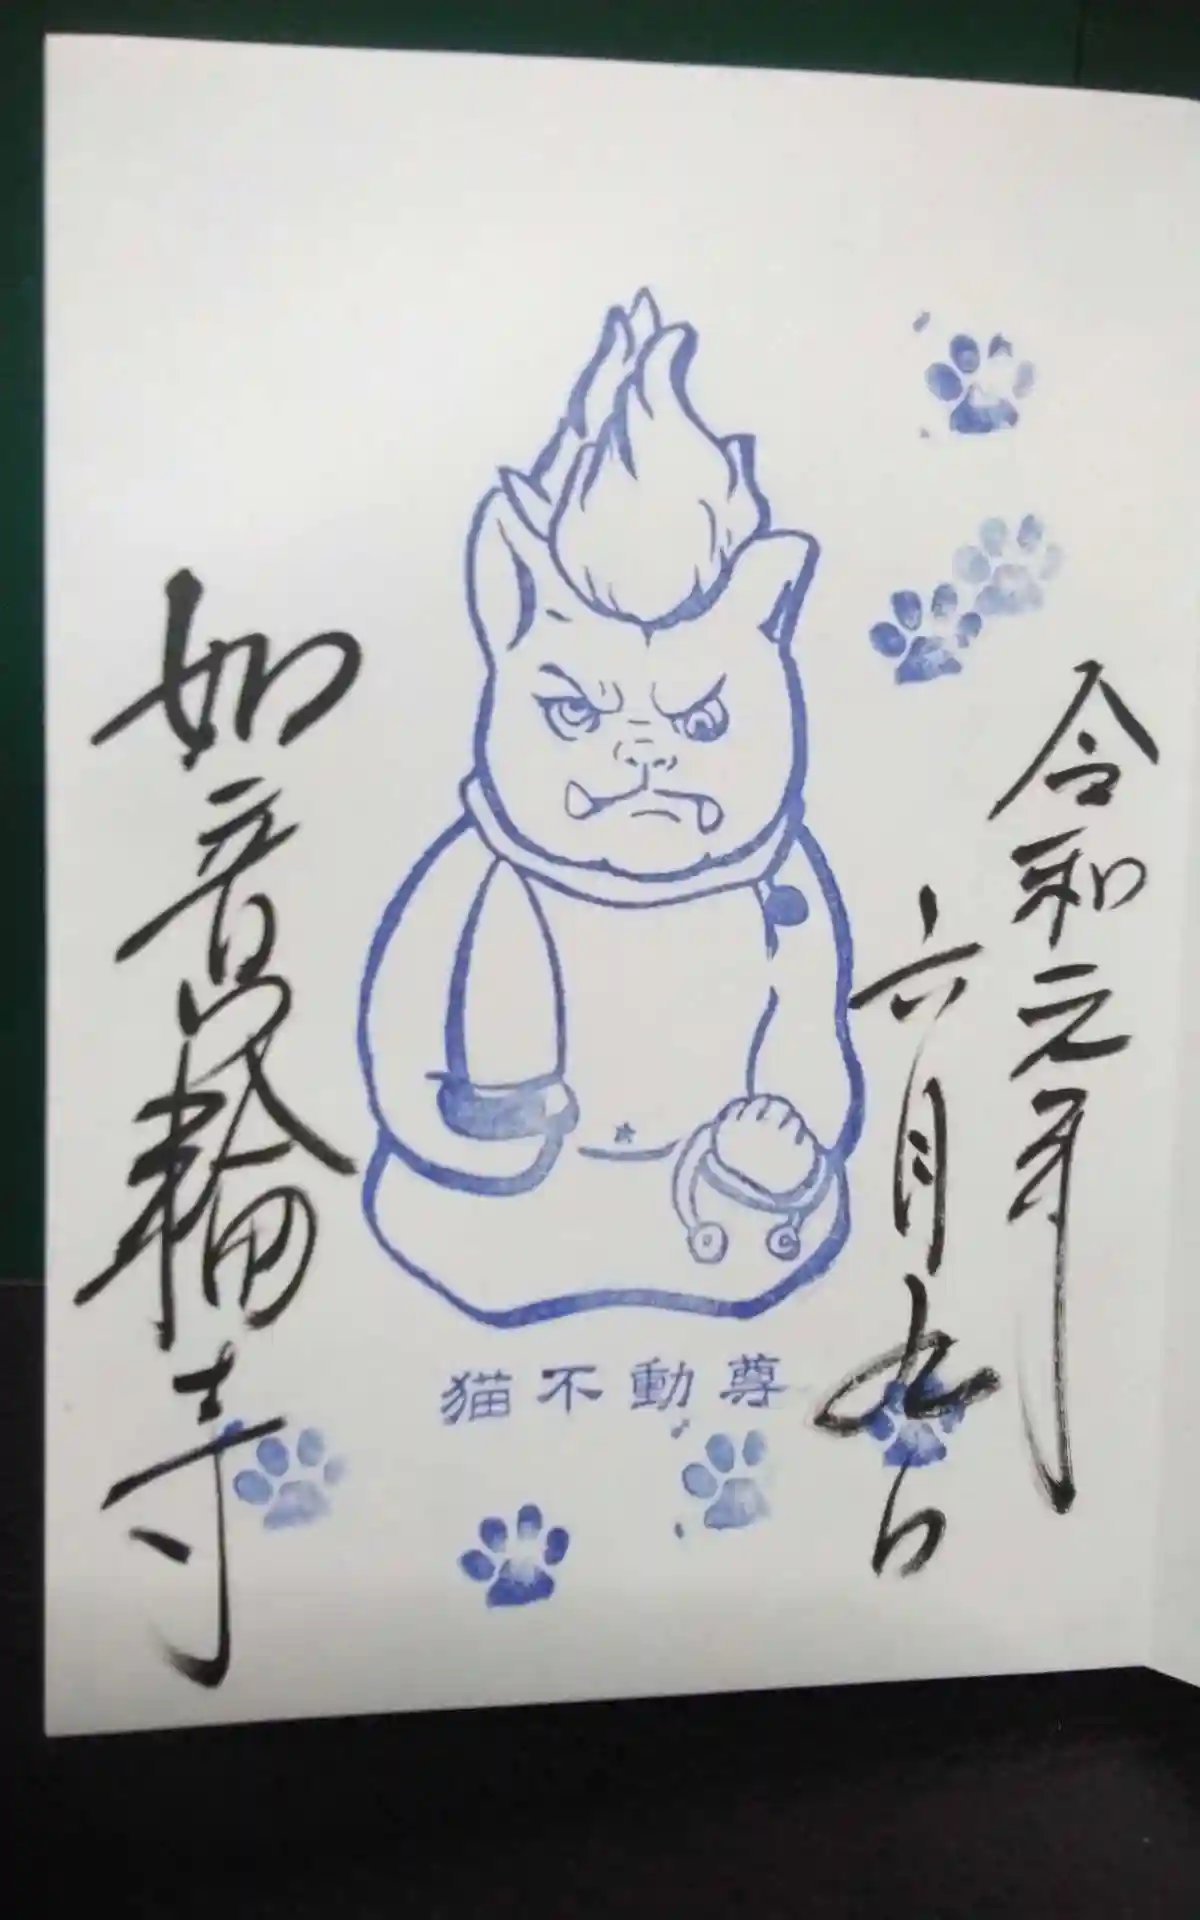 令和元年
六月九日
猫不動尊
如意輪寺